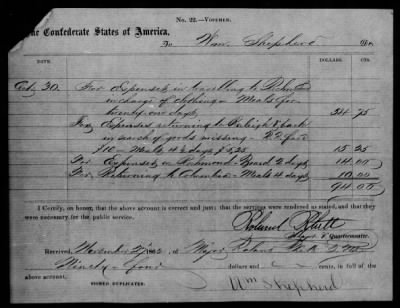 No. 22.—Voucher.
The Confederate States of America,
To Wm. Shepherd Dr.
DATE. DOLLARS. CTS.
Oct. 30. For Expenses in travelling to Richmond
in charge of clothing - Meals for
twenty-one days, 34 75
For Expenses returning to Raleigh & back
in search of goods missing - R. R. fare
$10 - Meals 4 ½ days $5,25 15 25
For Expenses in Richmond - Board 2 days 14 00
For Returning to Columbia - Meals 4 days 10 00
94.00
I Certify, on honor, that the above account is correct and just; that the services were rendered as stated, and that they
were necessary for the public service.
Roland Rhett
Quartermaster.
Received, November 2d 1862 of Major Roland Rhett Q. M.
Ninety - four dollars and cents, in full of the
above account.
SIGNED DUPLICATES. Wm Shepherd